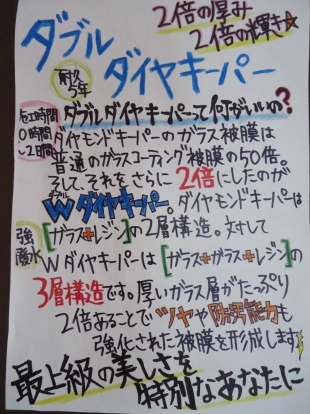 2倍の厚み
2倍の輝き★
ダブル
ダイヤキーパー
耐久
5年
ダブルダイヤキーパーって何がいいの?
施工時間
0時間
〜2日間
ダイヤモンドキーパーのガラス被膜は
普通のガラスコーティング被膜の50倍。
そして、それをさらに2倍にしたのが
Wダイヤキーパー。ダイヤモンドキーパーは
強
撥水
[ガラス+レジン]の2層構造。対して
Wダイヤキーパーは[ガラス+ガラス+レジン]の
3層構造です。厚いガラス層がたっぷり
2倍あることでツヤや防汚能力も
強化された被膜を形成します
最上級の美しさを
特別なあなたに